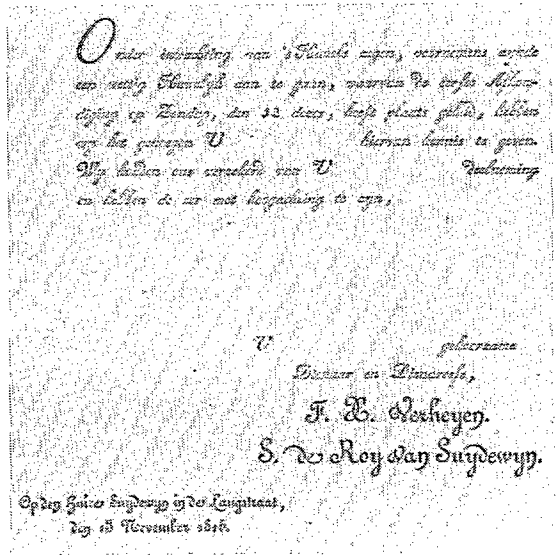 Onder inwachting van 's Hemels zegen, voornemens zynde
een wettig Huwelyk aan te gaan, waarvan de eerste Afkon-
diging op Zondag, den 12 dezer, heeft plaats gehad, hebben
wy het genoegen U hiervan kennis te geven.
Wy houden ons verzekerd van U deelneming
en hebben de eer met hoogachting te zyn,
U gehoorzame
Dienaar en Dienaresse,
F. X. Verheyen.
S. de Roy van Suydewyn.
Op den Huize Suydewyn in de Langstraat,
den November